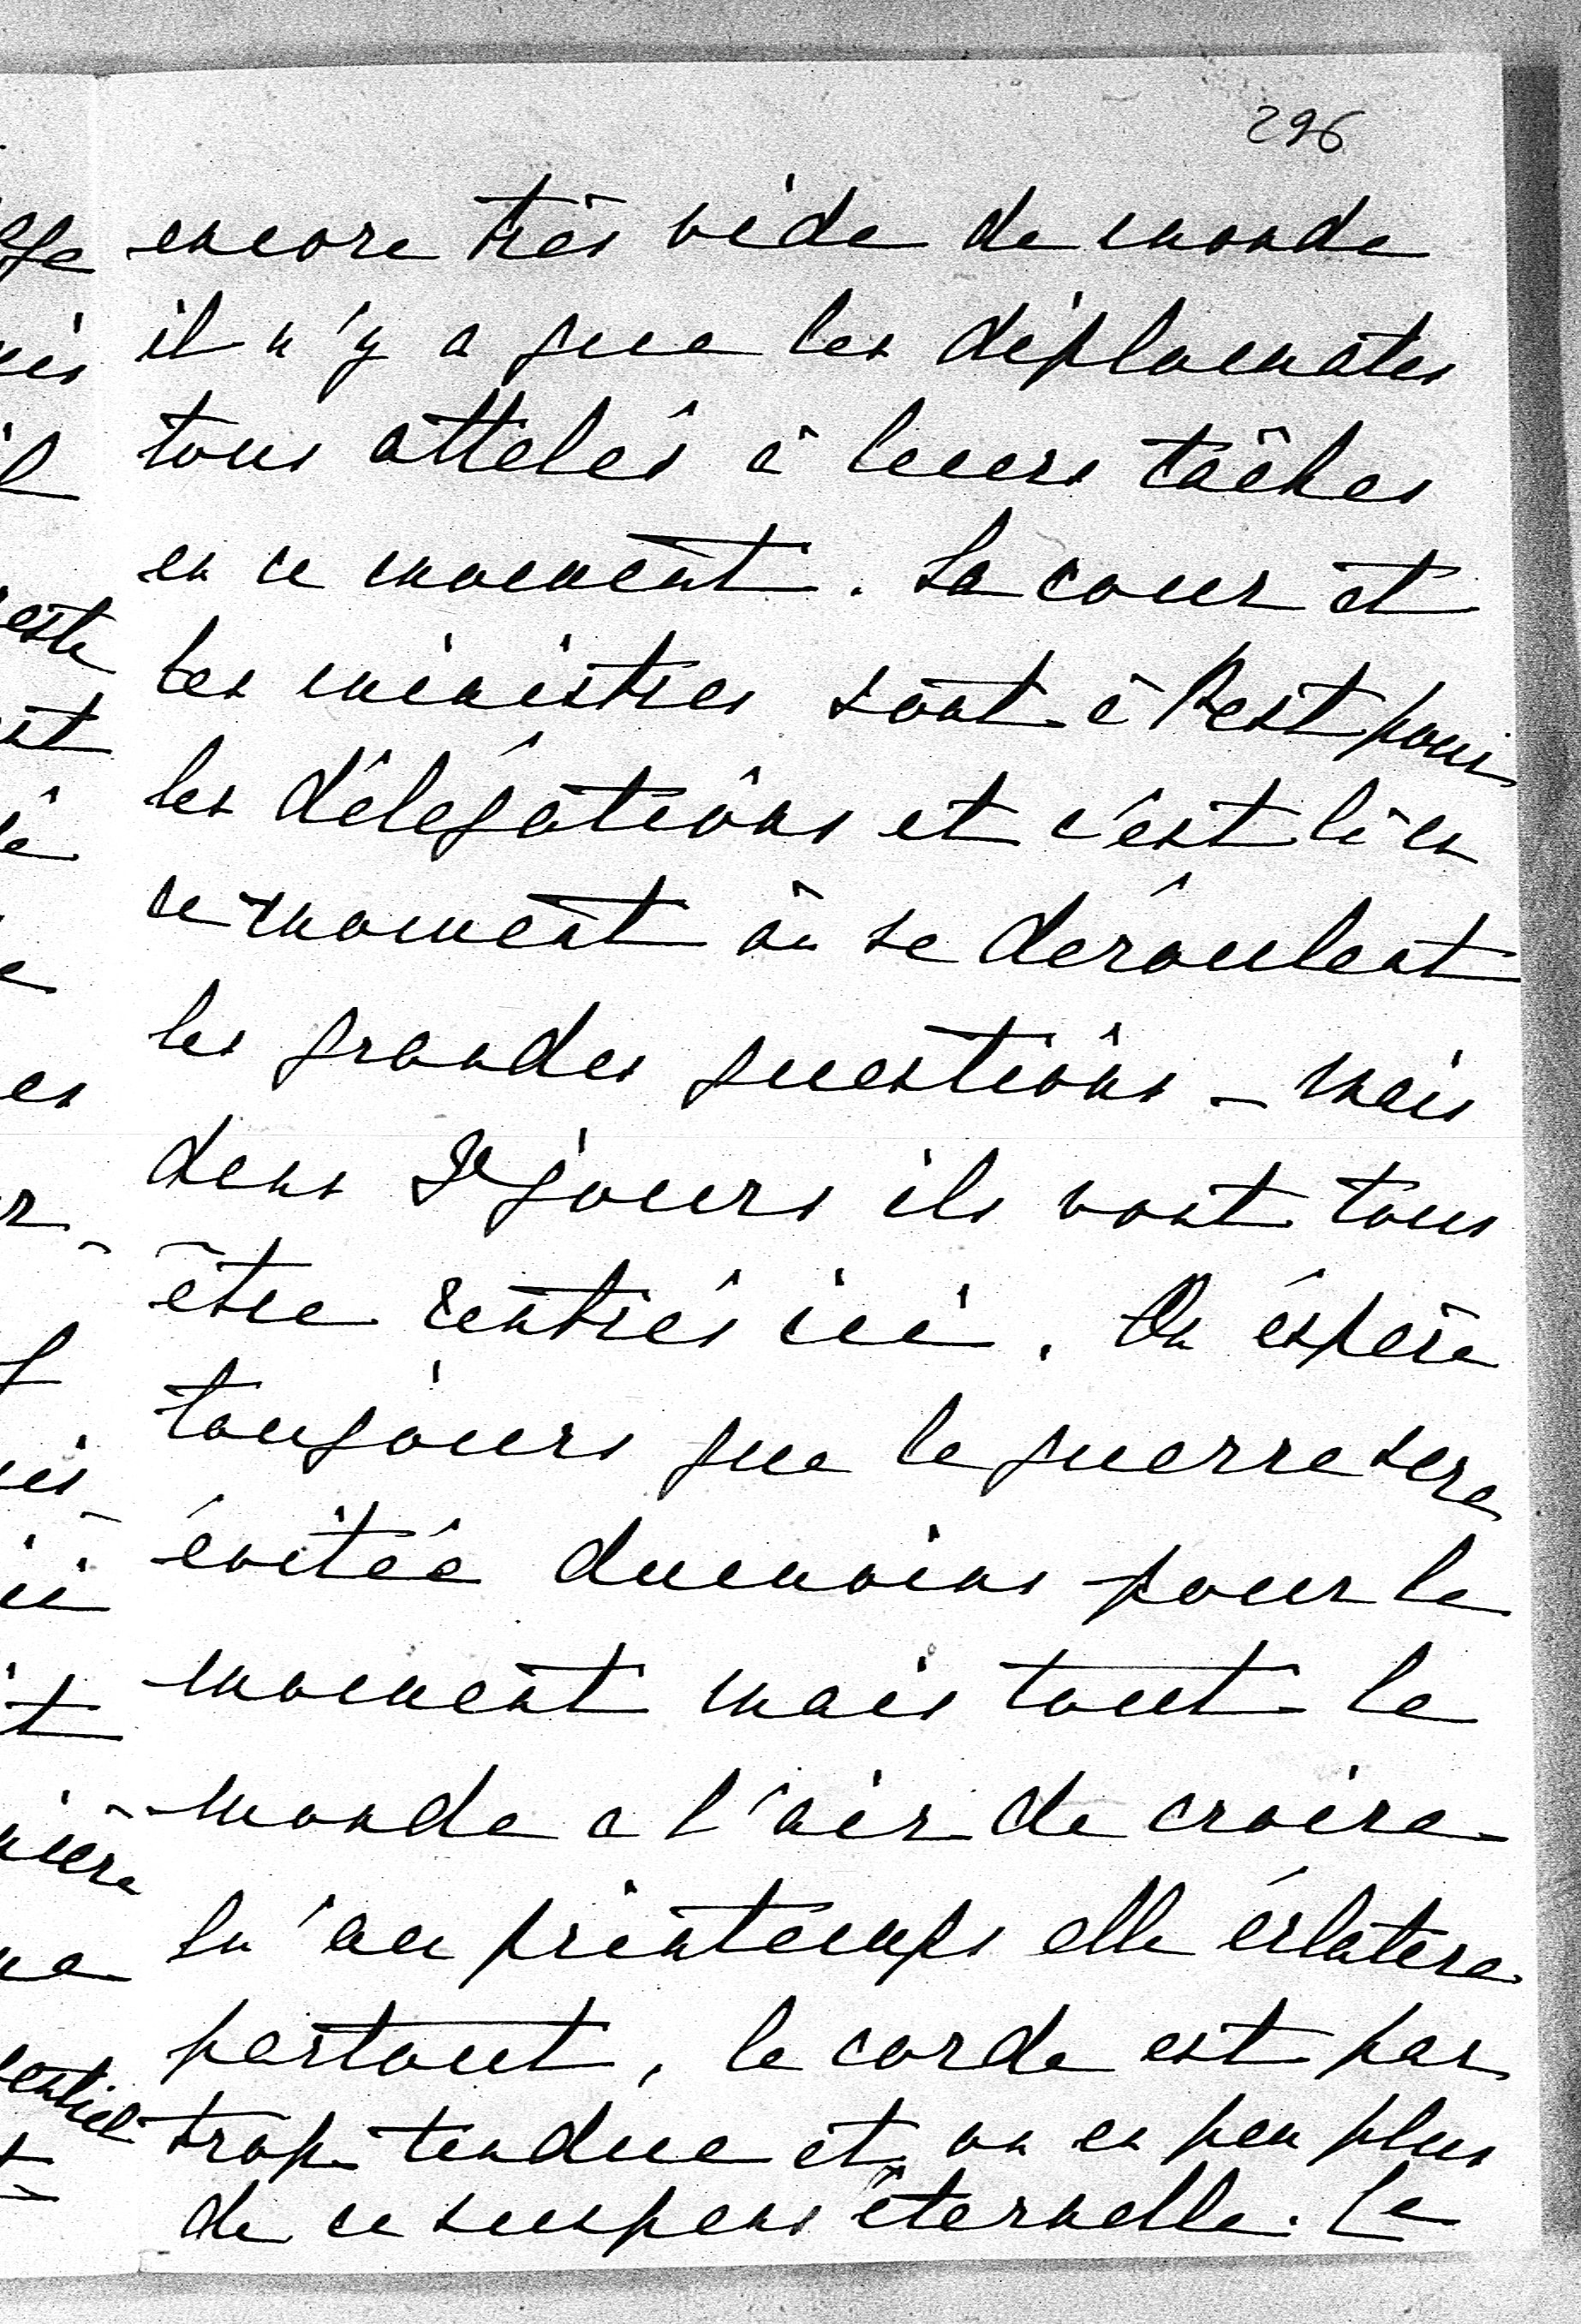 296
encore très vide de monde
il n'y a que les diplomates
tous attelés à leurs tâches
en ce moment. La cour et
les ministres sont à Pest pour
les délégations et c'est là en
ce moment où se déroulent
les grandes questions – mais
dans jours ils vont tous
être rentrés ici. On éspère
toujours que la guerre sera
évitée dumoins pour le
moment mais tout le
monde a l'air de croire
qu'au printemps elle éclatera
partout, la corde est par
trop tendue et on en peu plus
de ce suspens éternelle. Le